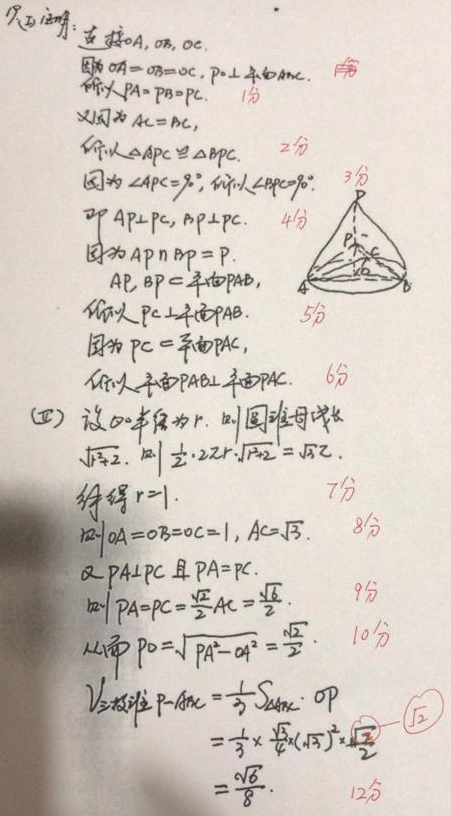 (I) 证明:
连接OA, OB, OC.
因为 OA=OB=OC, PO⊥平面ABC.
所以 PA=PB=PC. 1分
又因为 AC=BC,
所以 △APC≌△BPC. 2分
因为 ∠APC=90°, 所以 ∠BPC=90°. 3分
即 AP⊥PC, BP⊥PC. 4分
因为 AP∩BP=P.
AP, BP⊂平面PAB,
所以 PC⊥平面PAB. 5分
因为 PC⊂平面PAC,
所以 平面PAB⊥平面PAC. 6分
D
P
C
O
A
B
(II) 设⊙O半径为r. 则圆锥母线长
√r²+2. 则 1/2·2πr·√r²+2=√3π.
解得 r=1. 7分
则 OA=OB=OC=1, AC=√3. 8分
又 PA⊥PC 且 PA=PC.
则 PA=PC=√2/2 AC=√6/2. 9分
从而 PO=√PA²-OA²=√2/2. 10分
V三棱锥P-ABC=1/3 S△ABC·OP
=1/3×√3/4×(√3)²×√2/2 √2
=√6/8. 12分